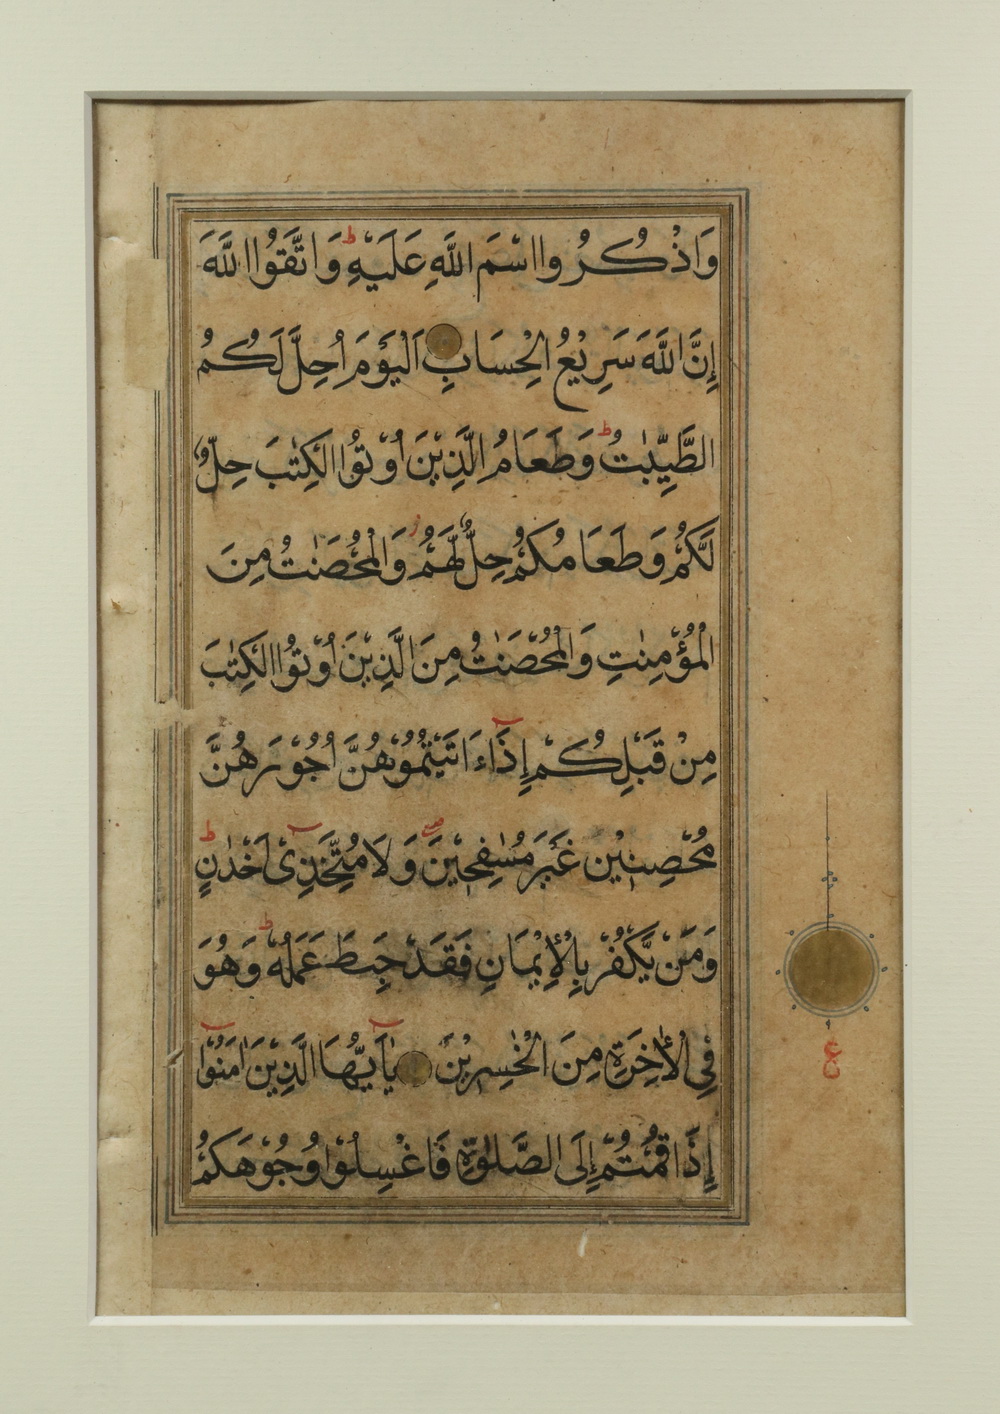 وَاذْكُرُوا اسْمَ اللَّهِ عَلَيْهِ ط وَاتَّقُوا اللَّهَ
إِنَّ اللَّهَ سَرِيْعُ الْحِسَابِ اَلْيَوْمَ اُحِلَّ لَكُمُ
الطَّيِّبٰتُ ط وَطَعَامُ الَّذِيْنَ اُوْتُوا الْكِتٰبَ حِلٌّ
لَّكُمْ وَطَعَامُكُمْ حِلٌّ لَّهُمْ ز وَالْمُحْصَنٰتُ مِنَ
الْمُؤْمِنٰتِ وَالْمُحْصَنٰتُ مِنَ الَّذِيْنَ اُوْتُوا الْكِتٰبَ
مِنْ قَبْلِكُمْ إِذَآ ءَاتَيْتُمُوْهُنَّ اُجُوْرَهُنَّ
مُحْصِنِيْنَ غَيْرَ مُسٰفِحِيْنَ وَلَا مُتَّخِذِىْٓ اَخْدَانٍ ط
وَمَنْ يَّكْفُرْ بِالْاِيْمَانِ فَقَدْ حَبِطَ عَمَلُهٗ ط وَهُوَ
فِى الْاٰخِرَةِ مِنَ الْخٰسِرِيْنَ يٰٓاَيُّهَا الَّذِيْنَ اٰمَنُوْٓا
إِذَا قُمْتُمْ إِلَى الصَّلٰوةِ فَاغْسِلُوْا وُجُوْهَكُمْ
ع